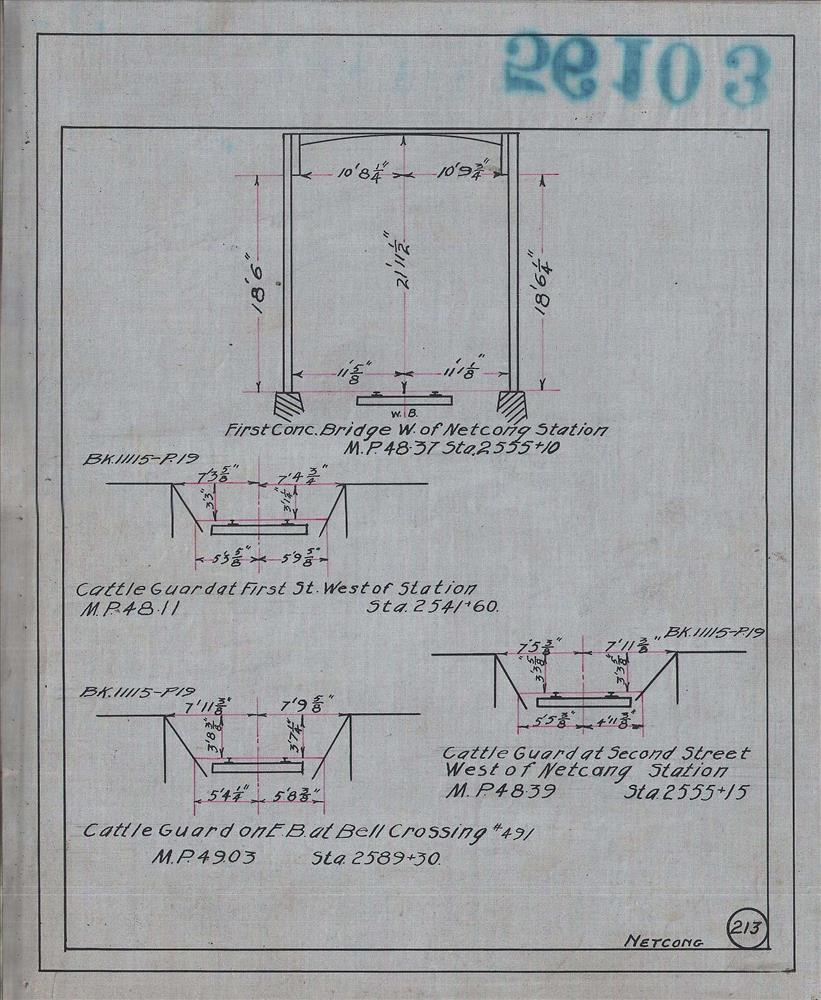 10'8¼" 10'9¾"
21'11½"
18'6"
18'6¼"
11'⅝" 11'1⅛"
W.B.
First Conc. Bridge W. of Netcong Station
M.P. 48.37 Sta. 2555+10
BK.11115-P.19
7'3⅝" 7'4¾"
3'3"
3'1¼"
5'3⅝" 5'9⅝"
Cattle Guard at First St. West of Station
M.P. 48.11 Sta. 2541+60.
BK.11115-P.19
7'5⅜" 7'11⅜"
5'5⅜" 4'11⅜"
Cattle Guard at Second Street
West of Netcong Station
M.P. 48.39 Sta. 2555+15
BK.11115-P.19
7'11⅜" 7'9⅝"
3'8⅜"
3'7¼"
5'4¼" 5'8⅜"
Cattle Guard on E.B. at Bell Crossing #491
M.P. 49.03 Sta. 2589+30.
NETCONG
213